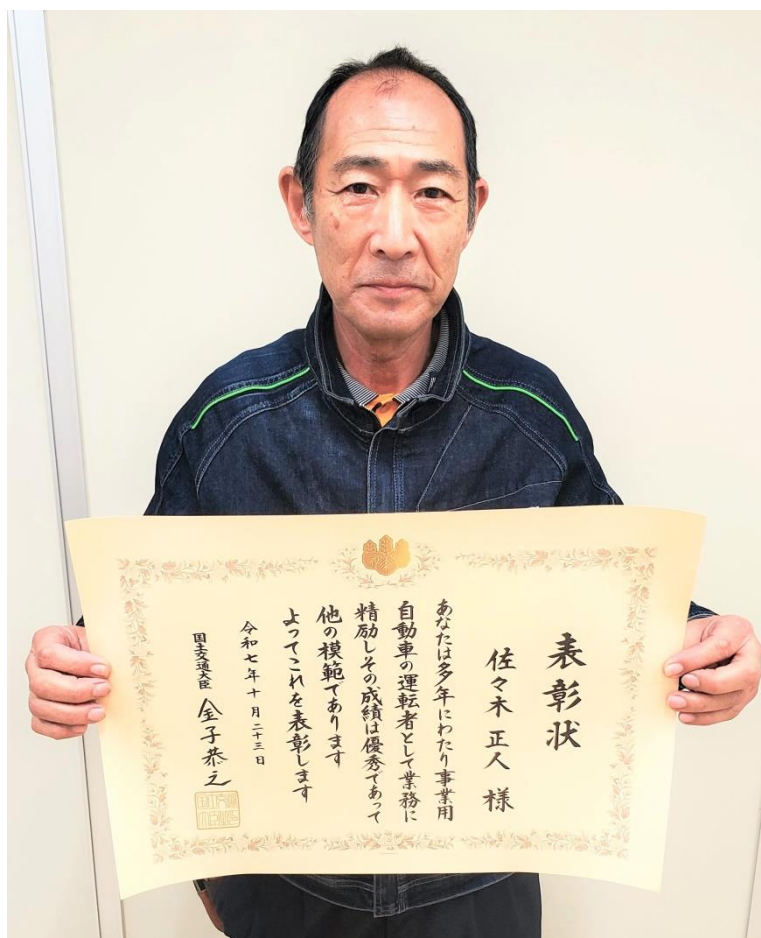 表彰状
佐々木正人様
あなたは多年にわたり事業用
自動車の運転者として業務に
精励しその成績は優秀であって
他の模範であります
よってこれを表彰します
令和七年十月二十三日
国土交通大臣 金子恭之